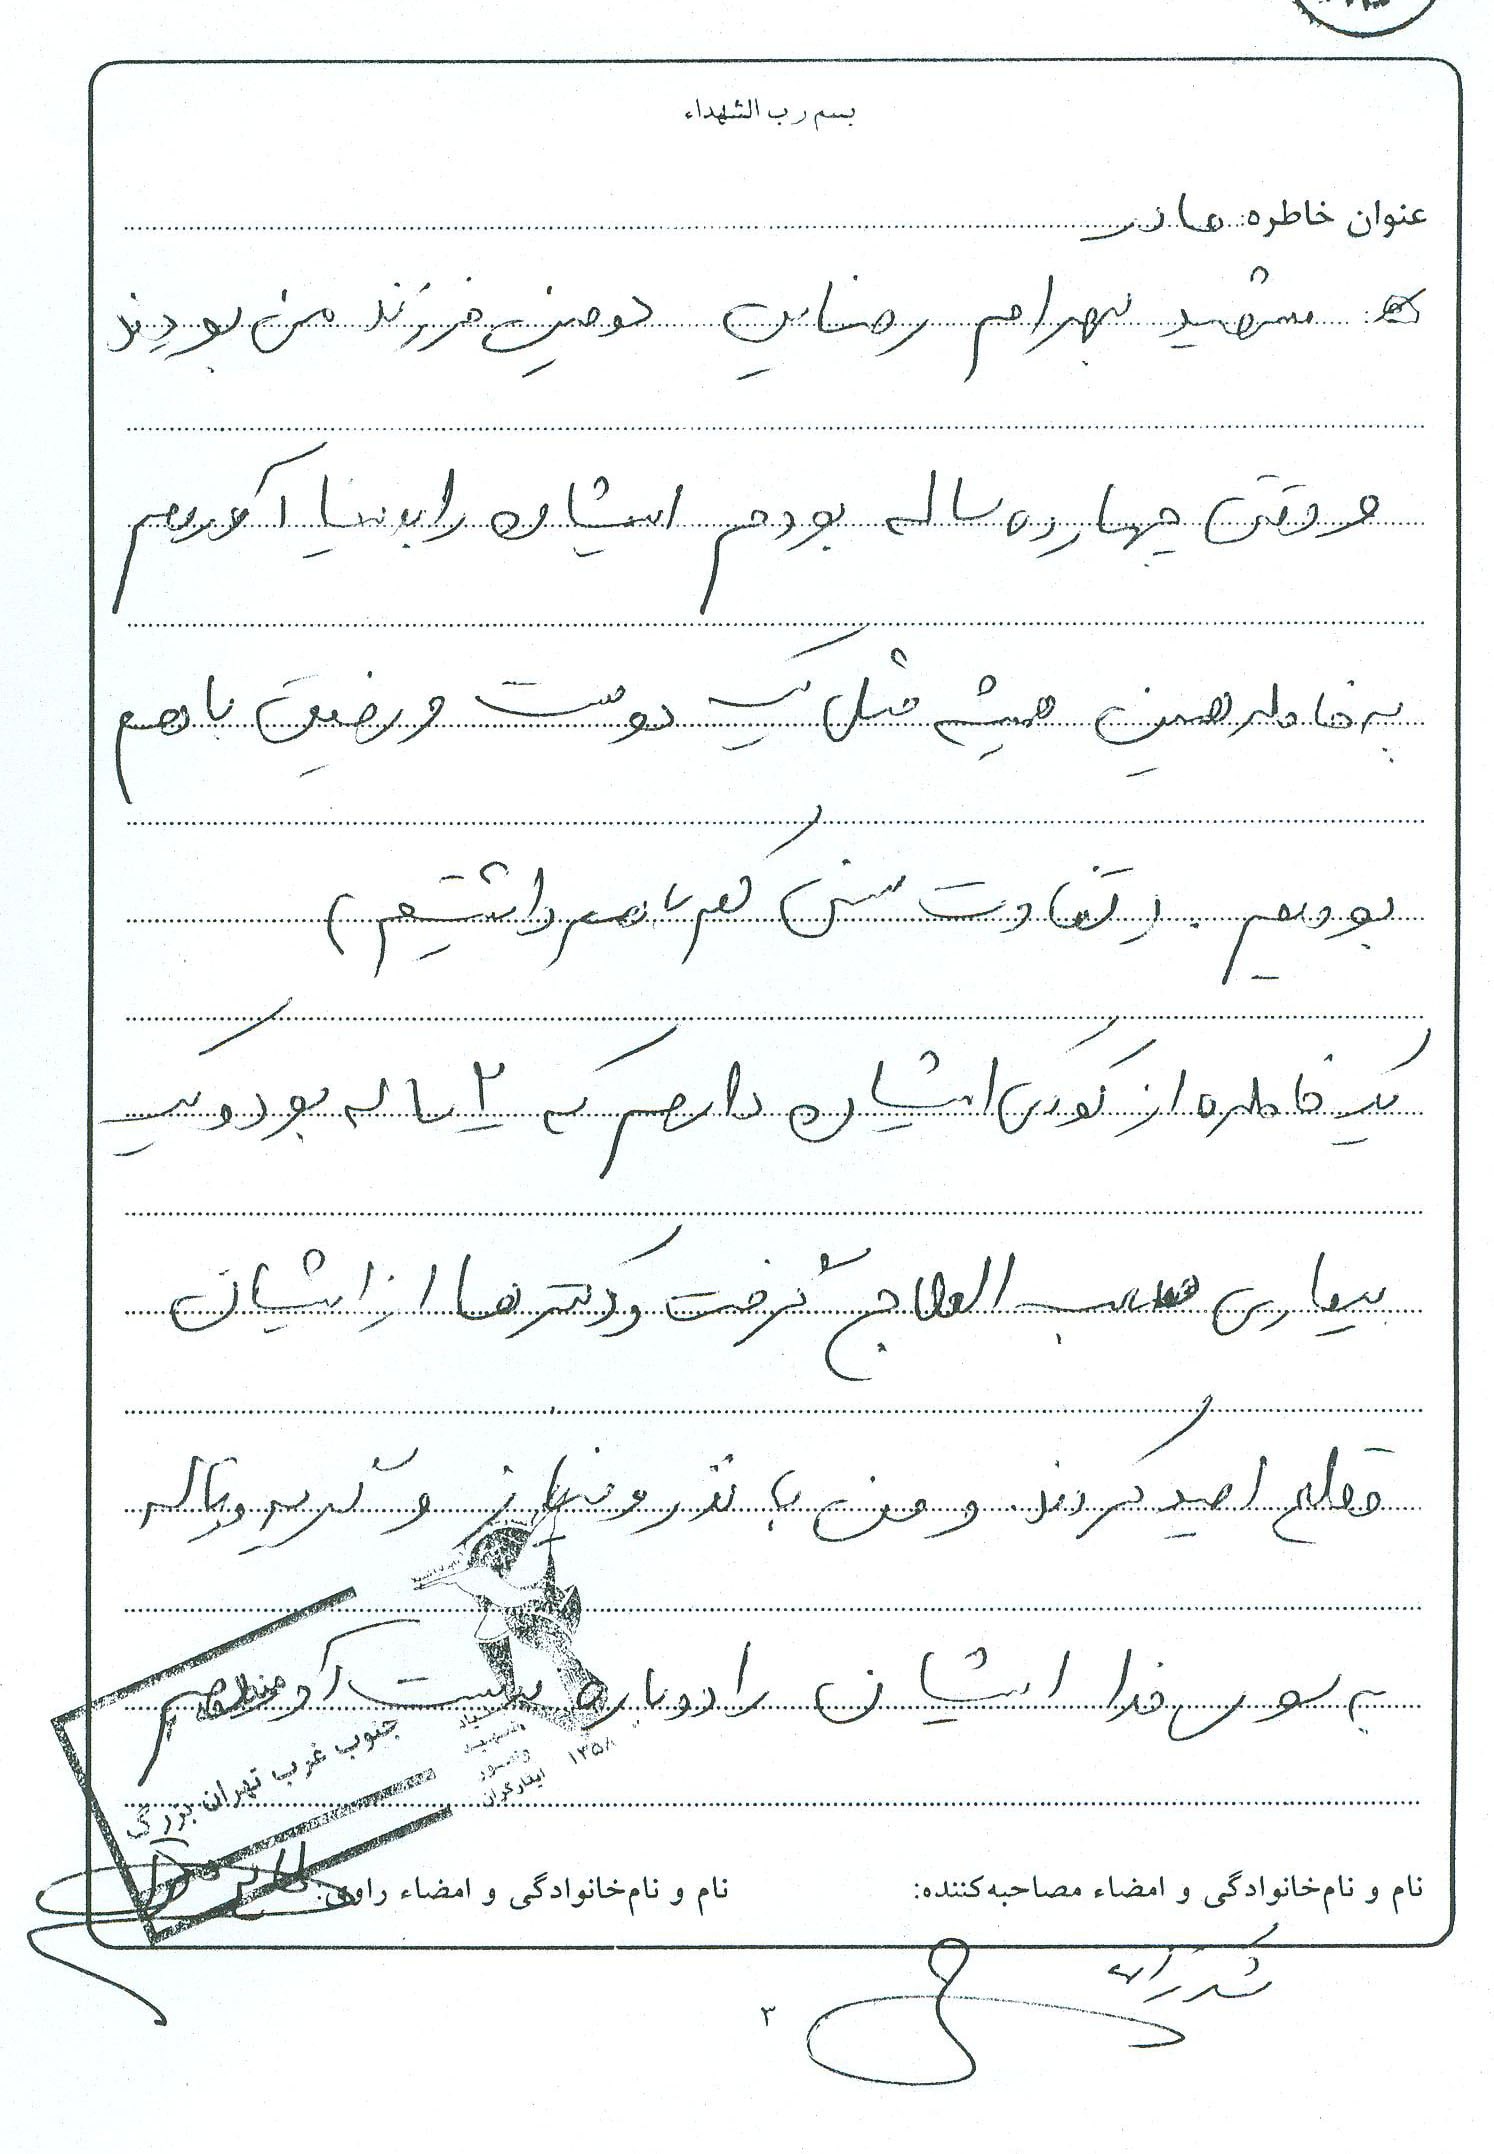 بسم رب الشهداء
عنوان خاطره: مادر
شهید بهرام رضایی دومین فرزند من بودند
و وقتی چهارده ساله بودم ایشان را بدنیا آوردم
به خاطر همین همیشه مثل یک دوست و رفیق با هم
بودیم. (تفاوت سنی کم با هم داشتیم)
یک خاطره از کودکی ایشان دارم که ۲ ساله بود و یک
بیماری صعب العلاج گرفت و دکترها از ایشان
قطع امید کردند. و من با نذر و نیاز و گریه و ناله
به سوی خدا ایشان را دوباره بدست آوردم
منطقه
جنوب غرب تهران بزرگ
بنیاد
شهید
و امور
ایثارگران
۱۳۵۸
نام و نام‌خانوادگی و امضاء مصاحبه‌کننده:
نام و نام‌خانوادگی و امضاء راوی:
۳